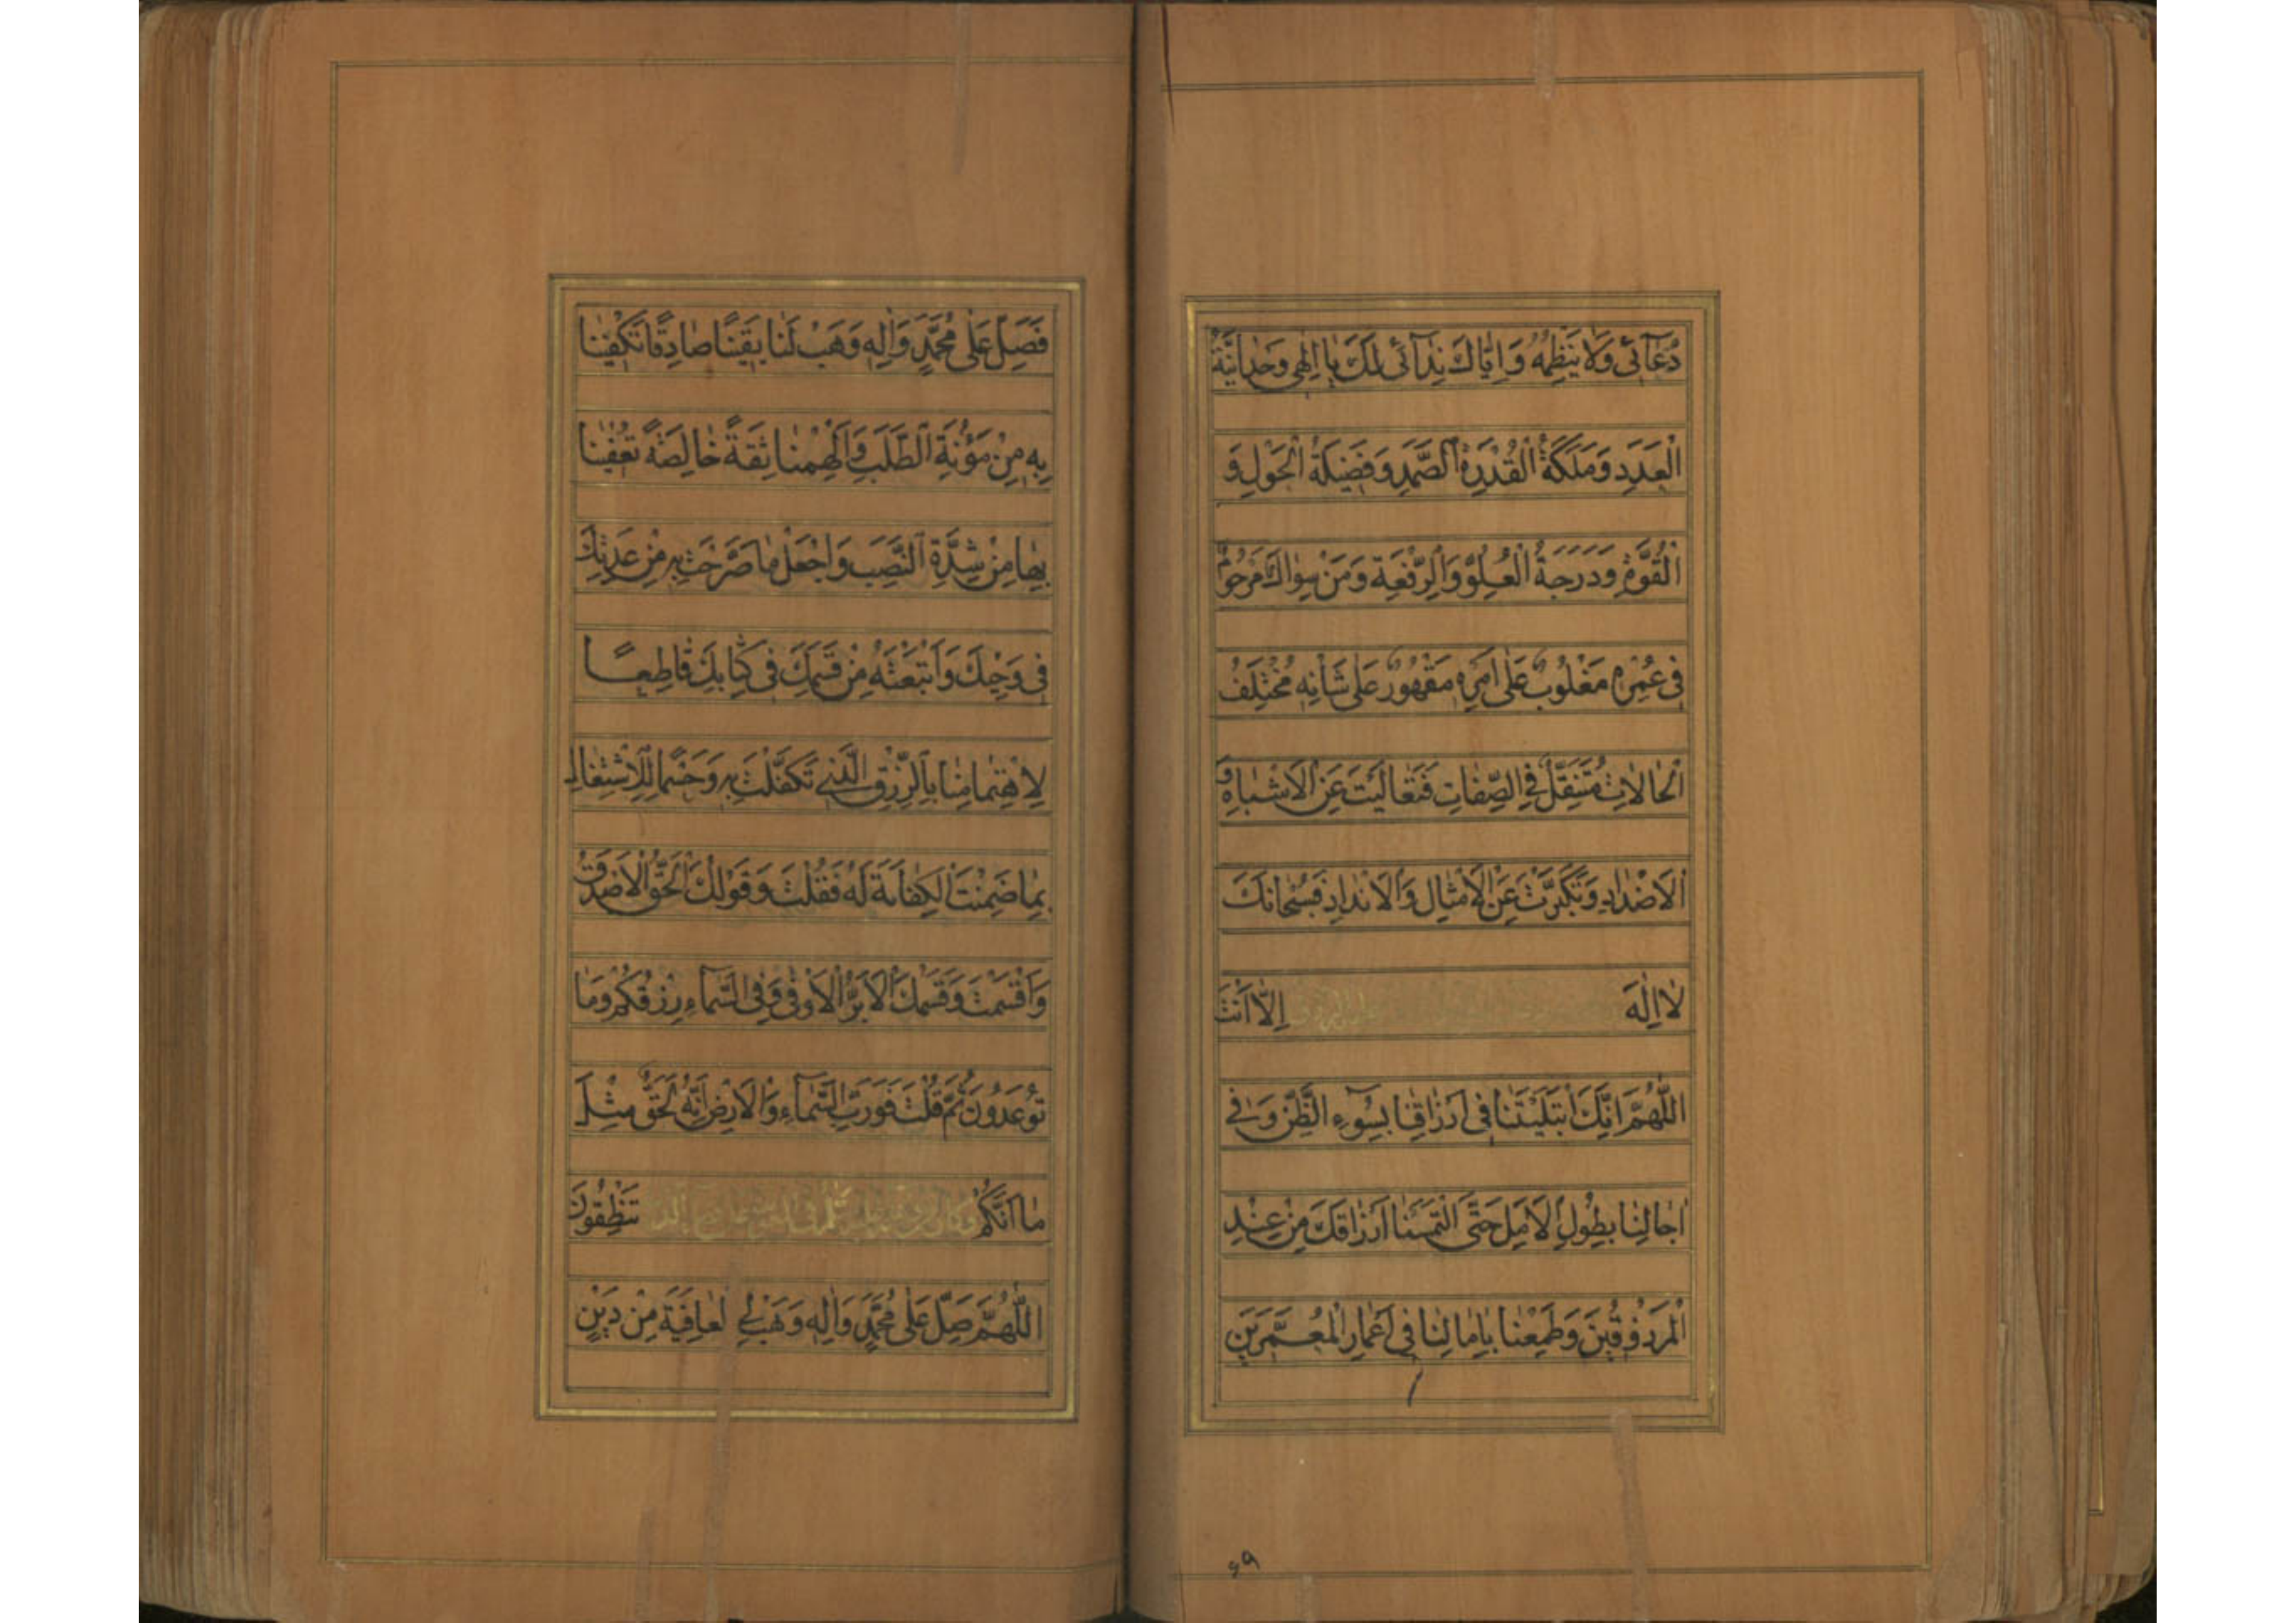 دُعَآئی وَلَا یَنْظِمُهُ وَاِیَّاكَ نِدَآئی لَكَ یَا اِلٰهِی وَحْدَانِیَّةُ
الْعَدَدِ وَمَلَكَةُ الْقُدْرَةِ الصَّمَدِ وَفَضِیلَةُ الْحَوْلِ وَ
الْقُوَّةِ وَدَرَجَةُ الْعُلُوِّ وَالرِّفْعَةِ وَمَنْ سِوَاكَ مَرْحُومٌ
فِی عُمُرِهِ مَغْلُوبٌ عَلٰی اَمْرِهِ مَقْهُورٌ عَلٰی شَانِهِ مُخْتَلِفُ
الْحَالَاتِ مُتَنَقِّلٌ فِی الصِّفَاتِ فَتَعَالَیْتَ عَنِ الْاَشْبَاهِ وَ
الْاَضْدَادِ وَتَكَبَّرْتَ عَنِ الْاَمْثَالِ وَالْاَنْدَادِ فَسُبْحَانَكَ
لَا اِلٰهَ اِلَّا اَنْتَ
اَللّٰهُمَّ اِنَّكَ ابْتَلَیْتَنَا فِی اَرْزَاقِنَا بِسُوٓءِ الظَّنِّ وَفِی
اٰجَالِنَا بِطُولِ الْاَمَلِ حَتَّی الْتَمَسْنَا اَرْزَاقَكَ مِنْ عِنْدِ
الْمَرْزُوقِینَ وَطَمِعْنَا بِاٰمَالِنَا فِی اَعْمَارِ الْمُعَمَّرِینَ
۶۹
فَصَلِّ عَلٰی مُحَمَّدٍ وَاٰلِهِ وَهَبْ لَنَا یَقِینًا صَادِقًا تَكْفِینَا
بِهِ مِنْ مَؤُنَةِ الطَّلَبِ وَاَلْهِمْنَا ثِقَةً خَالِصَةً تُعْفِینَا
بِهَا مِنْ شِدَّةِ النَّصَبِ وَاجْعَلْ مَا صَرَّحْتَ بِهِ مِنْ عِدَتِكَ
فِی وَحْیِكَ وَاَتْبَعْتَهُ مِنْ قَسَمِكَ فِی كِتَابِكَ قَاطِعًا
لِاهْتِمَامِنَا بِالرِّزْقِ الَّذِی تَكَفَّلْتَ بِهِ وَحَسْمًا لِلْاِشْتِغَالِ
بِمَا ضَمِنْتَ الْكِفَایَةَ لَهُ فَقُلْتَ وَقَوْلُكَ الْحَقُّ الْاَصْدَقُ
وَاَقْسَمْتَ وَقَسَمُكَ الْاَبَرُّ الْاَوْفٰی وَفِی السَّمَآءِ رِزْقُكُمْ وَمَا
تُوعَدُونَ ثُمَّ قُلْتَ فَوَرَبِّ السَّمَآءِ وَالْاَرْضِ اِنَّهُ لَحَقٌّ مِثْلَ
مَا اَنَّكُمْ تَنْطِقُونَ
اَللّٰهُمَّ صَلِّ عَلٰی مُحَمَّدٍ وَاٰلِهِ وَهَبْ لِیَ الْعَافِیَةَ مِنْ دَیْنٍ